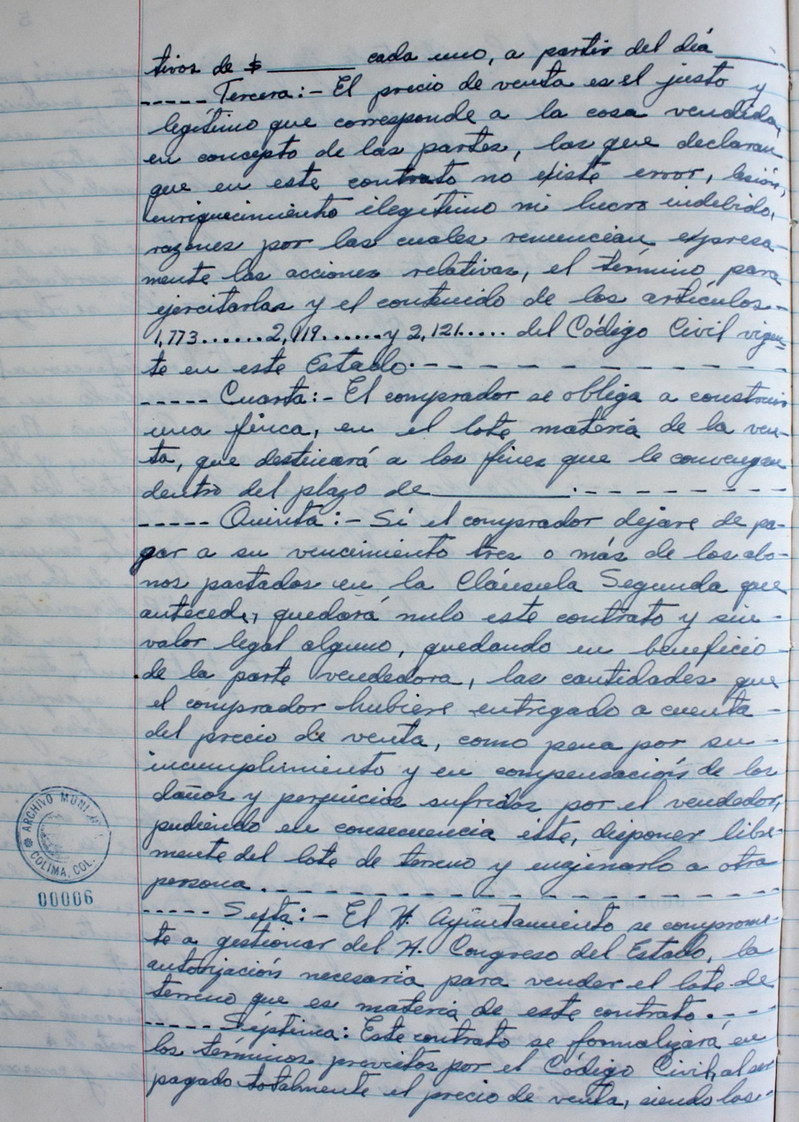 tivos de $ ________ cada uno, a partir del día ____
----- Tercera:- El precio de venta es el justo y
legítimo que corresponde a la cosa vendida,
en concepto de las partes, las que declaran
que en este contrato no existe error, lesión,
enriquecimiento ilegítimo ni lucro indebido,
razones por las cuales renuncian expresa-
mente las acciones relativas, el término para
ejercitarlas y el contenido de los artículos -
1,773......2,119......y 2,121.... del Código Civil vigen-
te en este Estado.- - - - - - - - - - - - -
----- Cuarta:- El comprador se obliga a construir
una finca, en el lote materia de la ven-
ta, que destinará a los fines que le convengan
dentro del plazo de __________.- - - - - - - -
----- Quinta:- Si el comprador dejare de pa-
gar a su vencimiento tres o más de los abo-
nos pactados en la Cláusula Segunda que
antecede, quedará nulo este contrato y sin -
valor legal alguno, quedando en beneficio -
de la parte vendedora, las cantidades que
el comprador hubiere entregado a cuenta -
del precio de venta, como pena por su -
incumplimiento y en compensación de los
daños y perjuicios sufridos por el vendedor,
pudiendo en consecuencia éste, disponer libre-
mente del lote de terreno y enajenarlo a otra
persona.- - - - - - - - - - - - - - - - - -
----- Sexta:- El H. Ayuntamiento se comprome-
te a gestionar del H. Congreso del Estado, la
autorización necesaria para vender el lote de
terreno que es materia de este contrato.- - - -
----- Séptima: Este contrato se formalizará en
los términos previstos por el Código Civil, al ser
pagado totalmente el precio de venta, siendo los -
ARCHIVO MUNICIPAL
COLIMA, COL.
00006